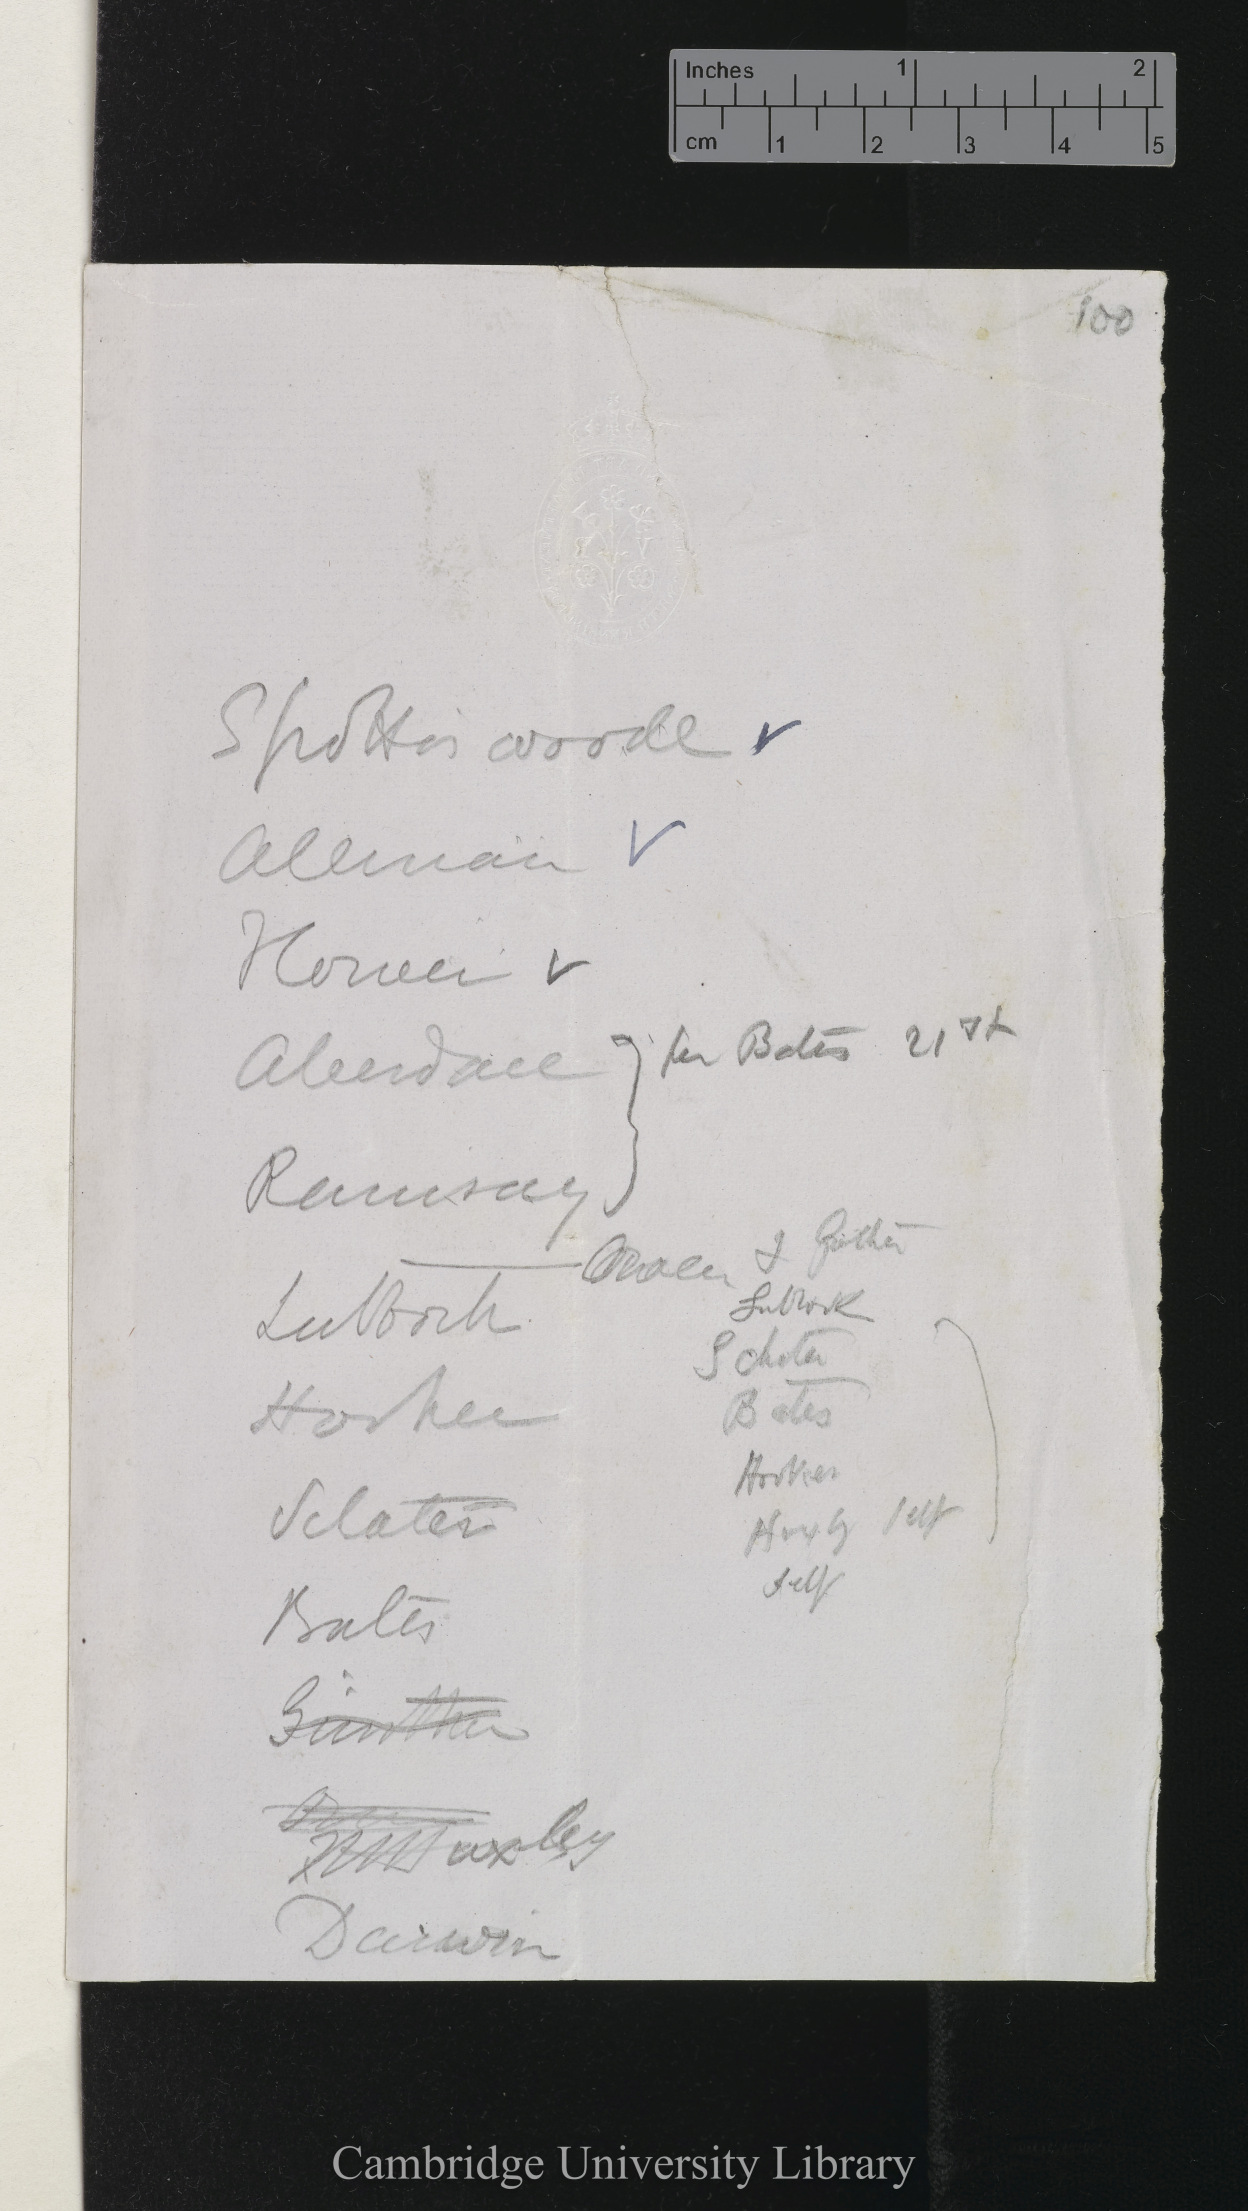 Inches 1 2
cm 1 2 3 4 5
100
Spottiswoode ✓
Allman ✓
Flower ✓
Aberdare } per Bates 21st
Ramsay
Owen & Günther
Lubbock
Lubbock
Sclater
Hooker
Bates
Hooker
Sclater
Huxly self
self
Bates
Günther
Huxley
Darwin
Cambridge University Library